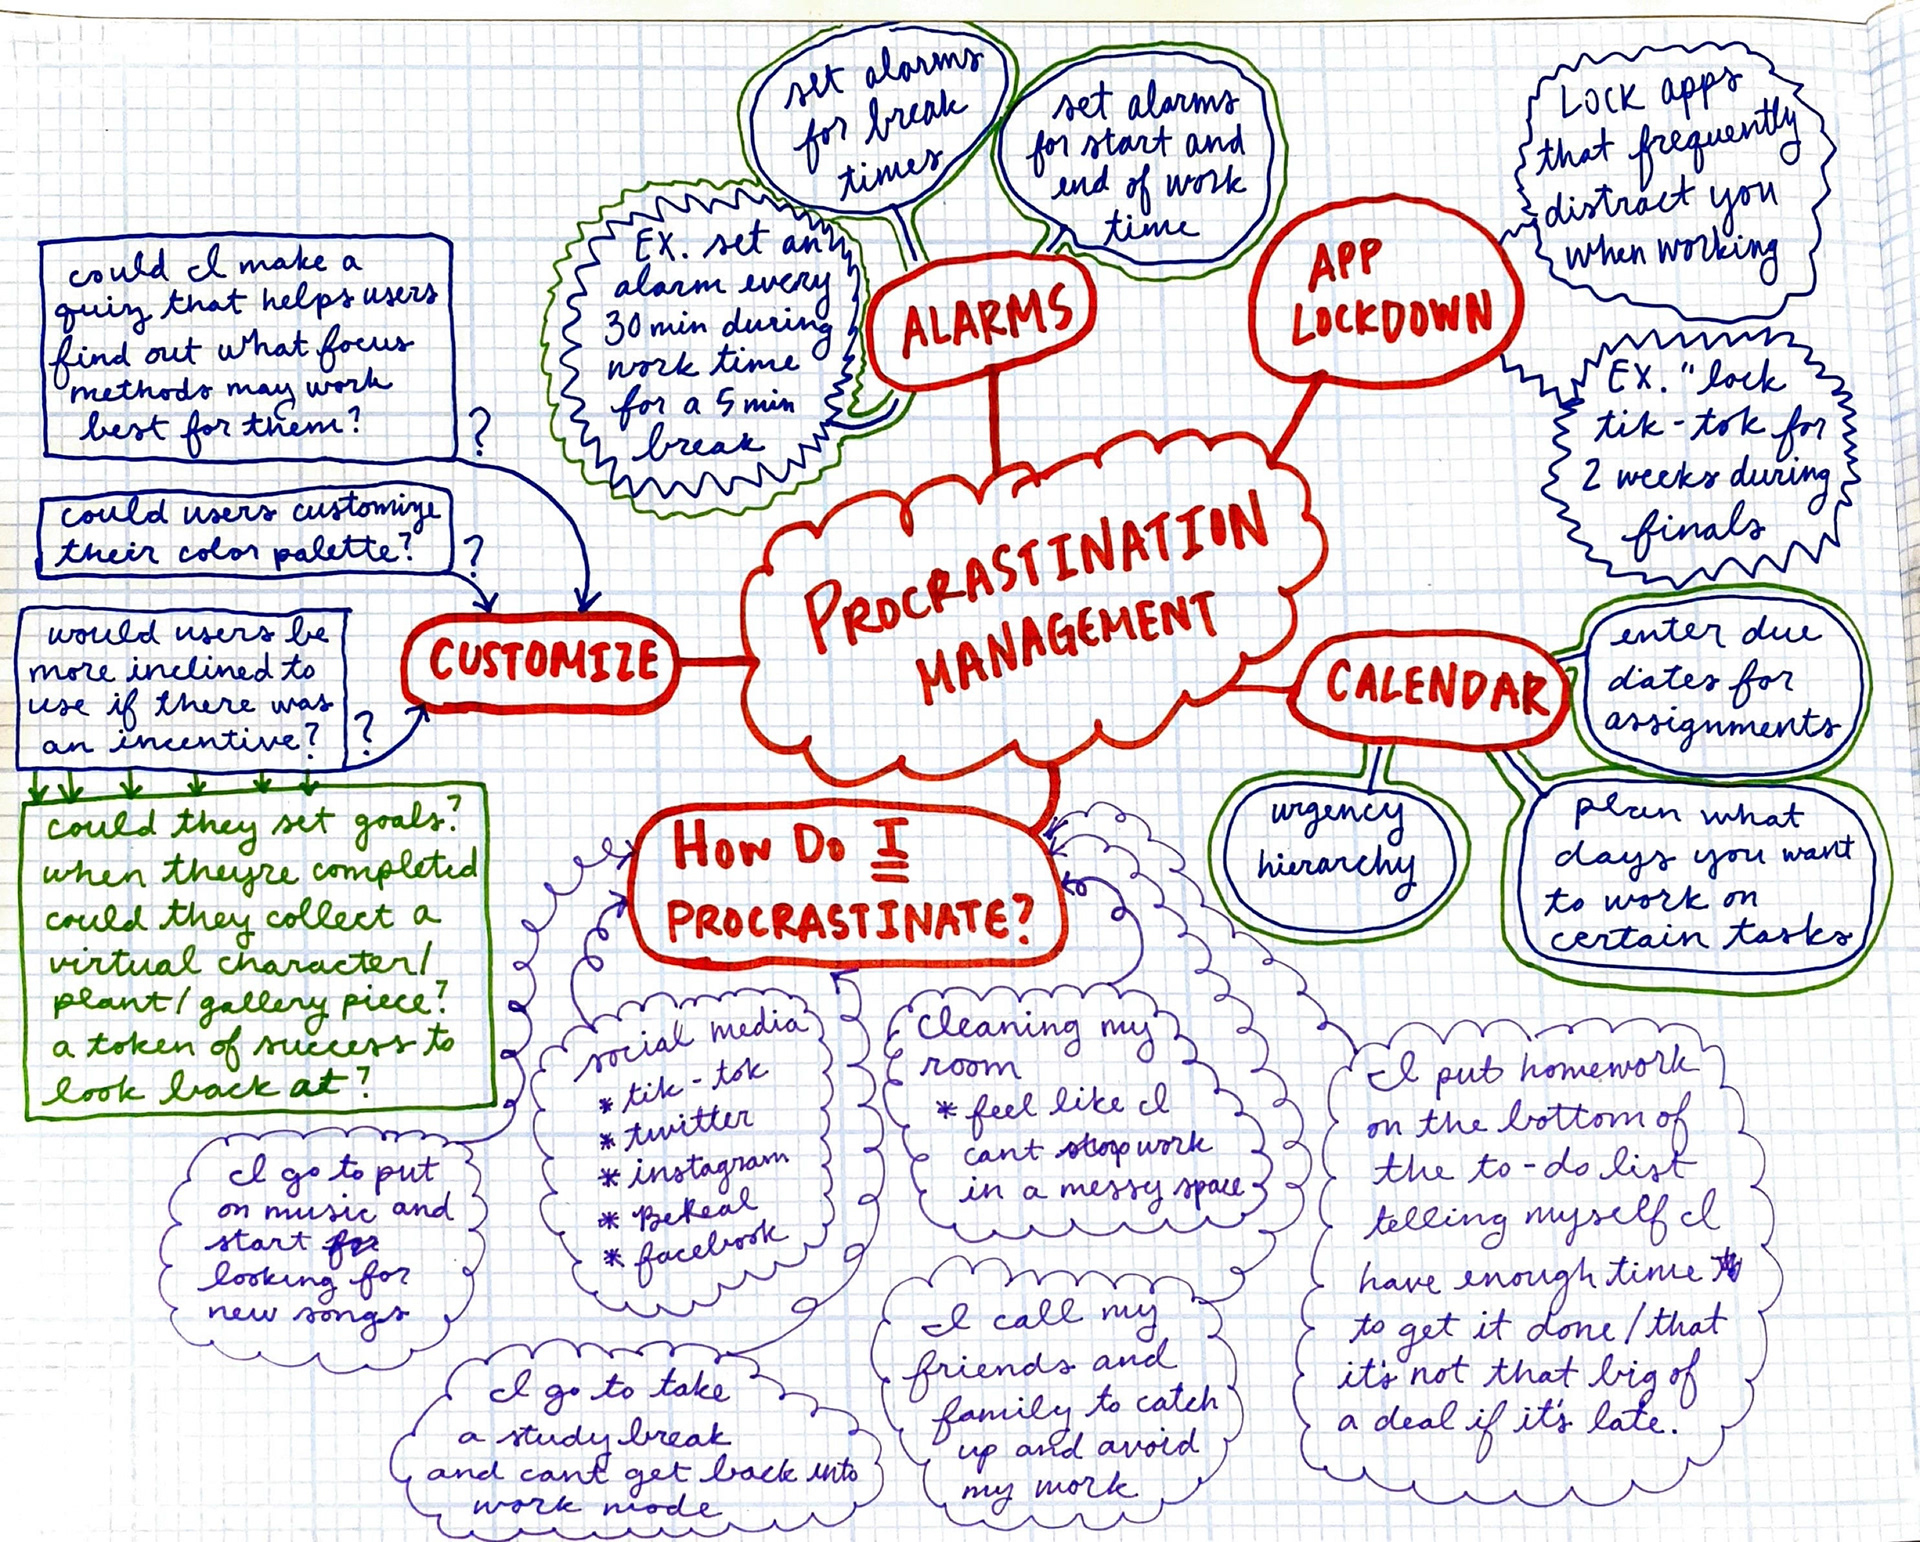 set alarms
for break
times
set alarms
for start and
end of work
time
EX. set an
alarm every
30 min during
work time
for a 5 min
break
ALARMS
APP
LOCKDOWN
LOCK apps
that frequently
distract you
when working
EX. "lock
tik-tok for
2 weeks during
finals
could I make a
quiz that helps users
find out what focus
methods may work
best for them?
?
could users customize
their color palette?
?
would users be
more inclined to
use if there was
an incentive?
?
could they set goals?
when theyre completed
could they collect a
virtual character/
plant/gallery piece?
a token of success to
look back at?
CUSTOMIZE
PROCRASTINATION
MANAGEMENT
CALENDAR
enter due
dates for
assignments
urgency
hierarchy
plan what
days you want
to work on
certain tasks
HOW DO I
PROCRASTINATE?
I go to put
on music and
start for
looking for
new songs
social media
* tik-tok
* twitter
* instagram
* BeReal
* facebook
cleaning my
room
* feel like I
cant stop work
in a messy space
I go to take
a study break
and cant get back into
work mode
I call my
friends and
family to catch
up and avoid
my work
I put homework
on the bottom of
the to-do list
telling myself I
have enough time
to get it done/that
it's not that big of
a deal if it's late.